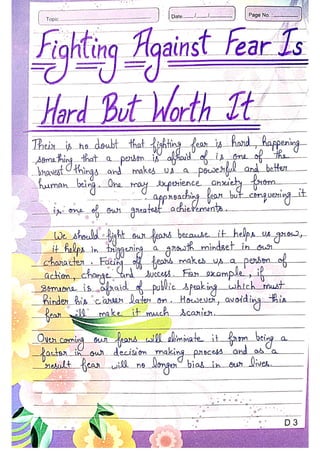 Topic
Date / /
Page No.
Fighting Against Fear Is
Hard But Worth It
Their is no doubt that fighting fear is hard, happening
something that a person is afraid of is one of the
bravest things and makes us a powerful and better
human being. One may experience anxiety from
approaching fear but conquering it
is one of our greatest achievements.
We should fight our fears because it helps us grow,
it helps in triggering a growth mindset in our
character. Facing of fears makes us a person of
action, change and success. For example, if
someone is afraid of public speaking which must
hinder his career later on. However, avoiding this
fear will make it much scarier.
Over coming our fears will eliminate it from being a
factor in our decision making process and as a
result fear will no longer bias in our lives.
D 3